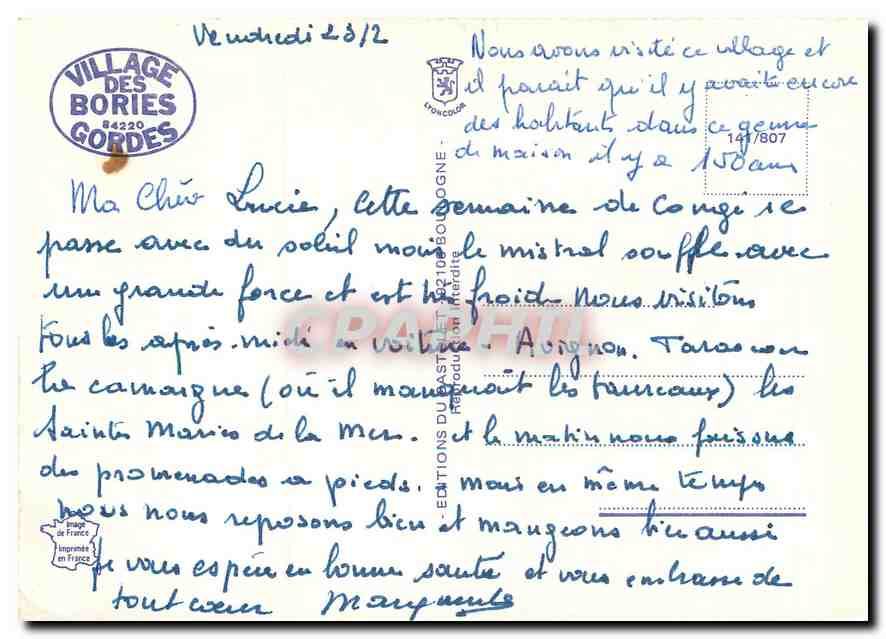 Vendredi 23/2
VILLAGE
DES
BORIES
84220
GORDES
LYONCOLOR
Nous avons visité ce village et
il parait qu'il y avait encore
des habitants dans ce genre
de maison il y a 150 ans
141/807
Ma Chère Lucie, cette semaine de congé se
passe avec du soleil mais le mistral souffle avec
une grande force et est très froid. Nous visitons
tous les après-midi en voiture. Avignon. Tarascon
la camargue (où il manquait les taureaux) les
Saintes Maries de la Mer. et le matin nous faisons
des promenades a pieds. mais en même temps
nous nous reposons bien et mangeons bien aussi
Je vous espère en bonne santé et vous embrasse de
tout cœur Marguerite
- EDITIONS DU BASTINET - 92106 BOULOGNE -
Reproduction Interdite
Image
de France
Imprimée
en France
CPAPHIL